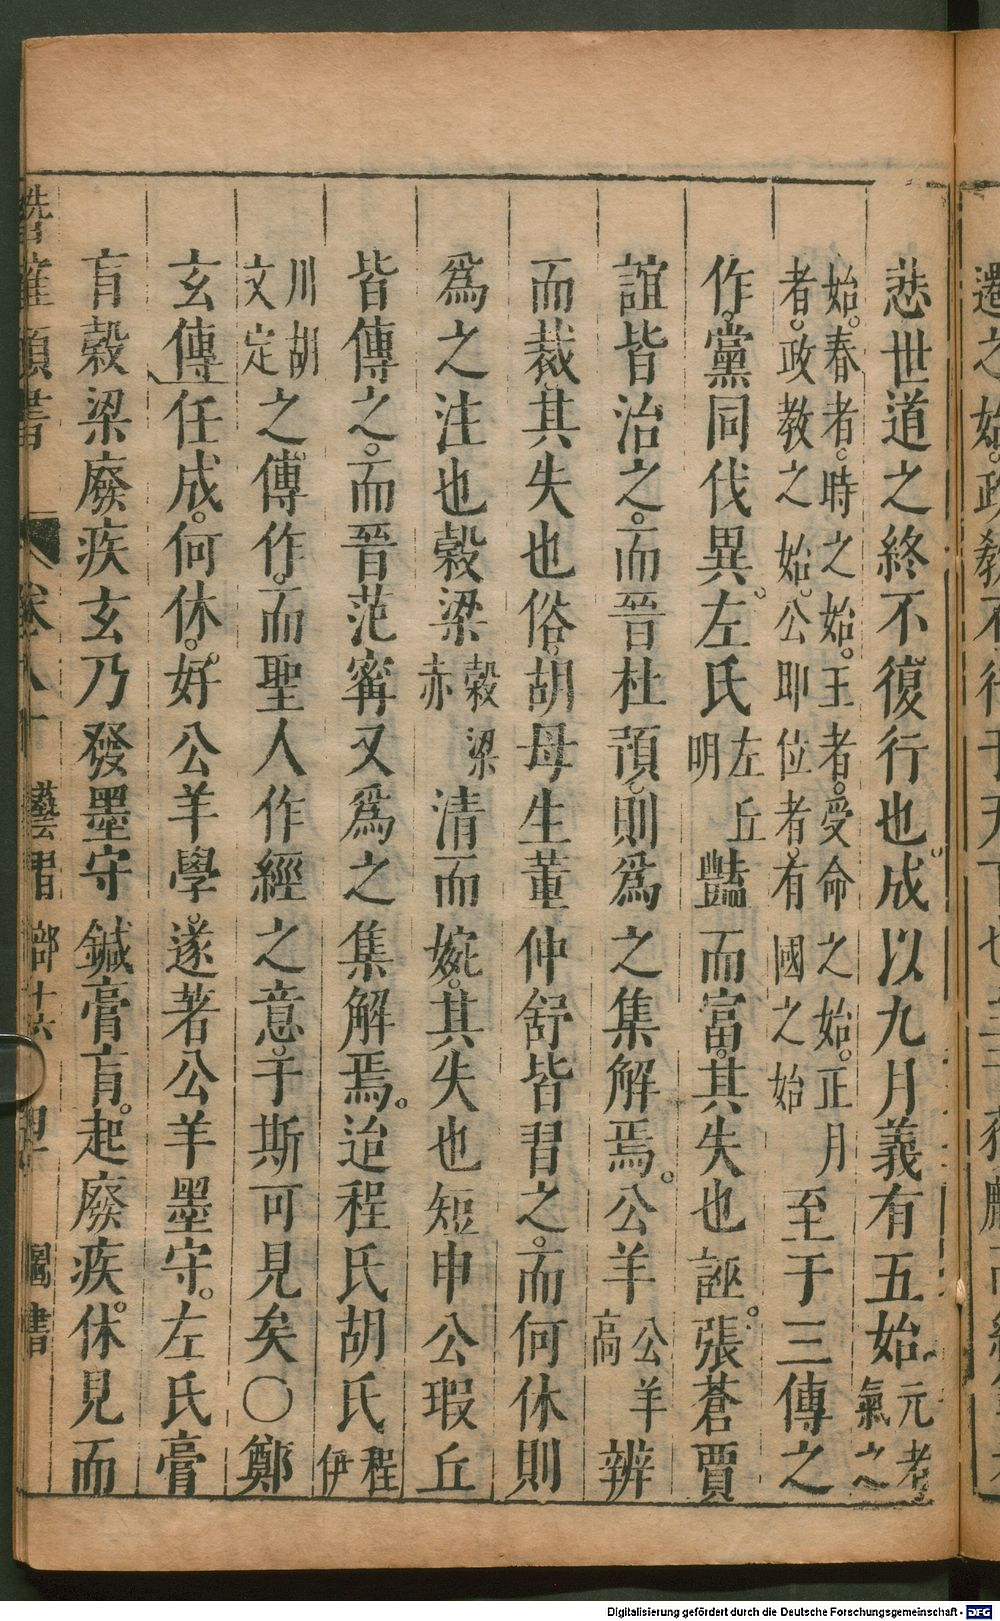 還之始。政教不行于天下也三
悲世道之終不復行也。成以九月義有五始元者氣之
始。春者。時之始。王者。受命之始。正月
者。政教之始。公即位者。有國之始
至于三傳之
作。黨同伐異。左氏左丘明豔而富。其失也誣。張蒼賈
誼皆治之。而晉杜預。則爲之集解焉。公羊公羊高辨
而裁。其失也俗。胡母生董仲舒皆習之。而何休則
爲之注也穀梁穀梁赤清而婉。其失也短申公瑕丘
皆傳之。而晉范寗又爲之集解焉。迨程氏胡氏程伊
川胡文定之傳作。而聖人作經之意。于斯可見矣〇鄭
玄傳任成。何休。好公羊學。遂著公羊墨守。左氏膏
肓穀梁廢疾玄乃發墨守鍼膏肓。起廢疾。休見而
潛確類書 卷八十 藝習部十六 圖書
Digitalisierung gefördert durch die Deutsche Forschungsgemeinschaft - DFG